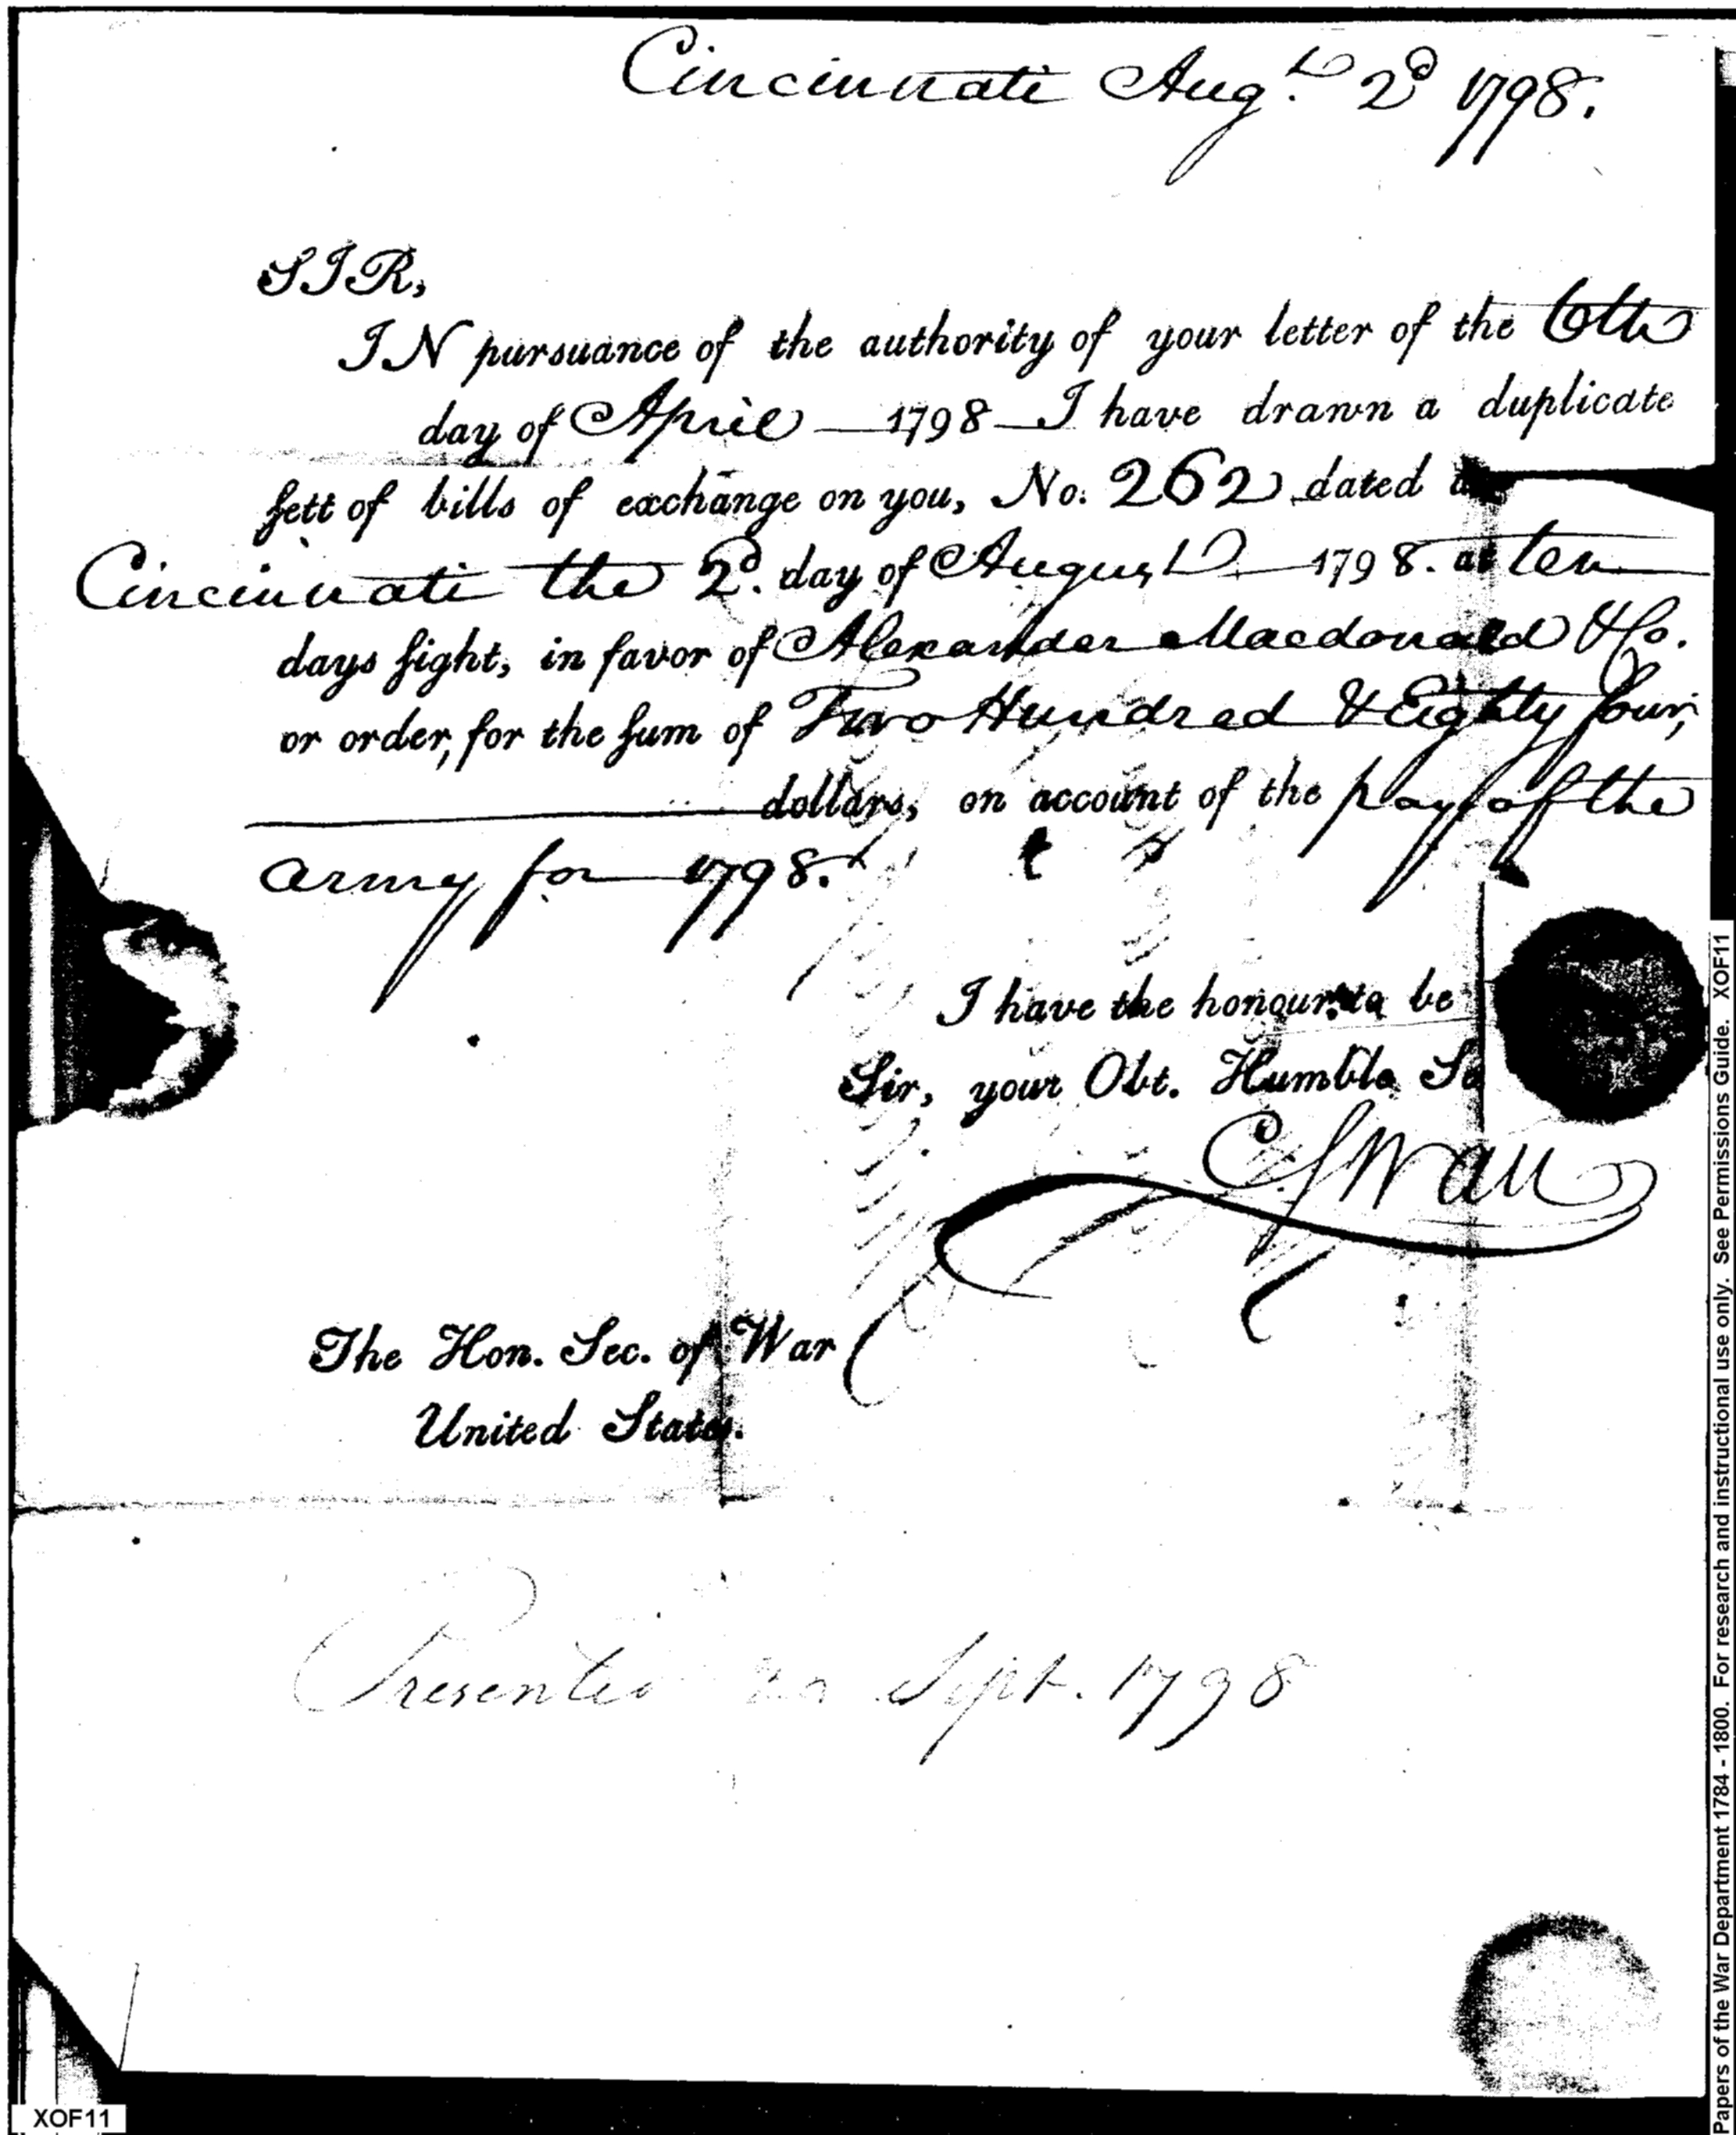 Cincinnati Augt. 2d 1798.
SIR,
IN pursuance of the authority of your letter of the 6th
day of April 1798 I have drawn a duplicate
sett of bills of exchange on you, No. 262 dated
Cincinnati the 2d. day of August 1798. at ten
days sight, in favor of Alexander Macdonald & Co.
or order, for the sum of Two Hundred & Eighty four,
dollars, on account of the pay of the
army for 1798.
I have the honour to be
Sir, your Obt. Humble Se
C Swan
The Hon. Sec. of War
United States.
Presented Sept. 1798
XOF11
Papers of the War Department 1784 - 1800. For research and instructional use only. See Permissions Guide. XOF11